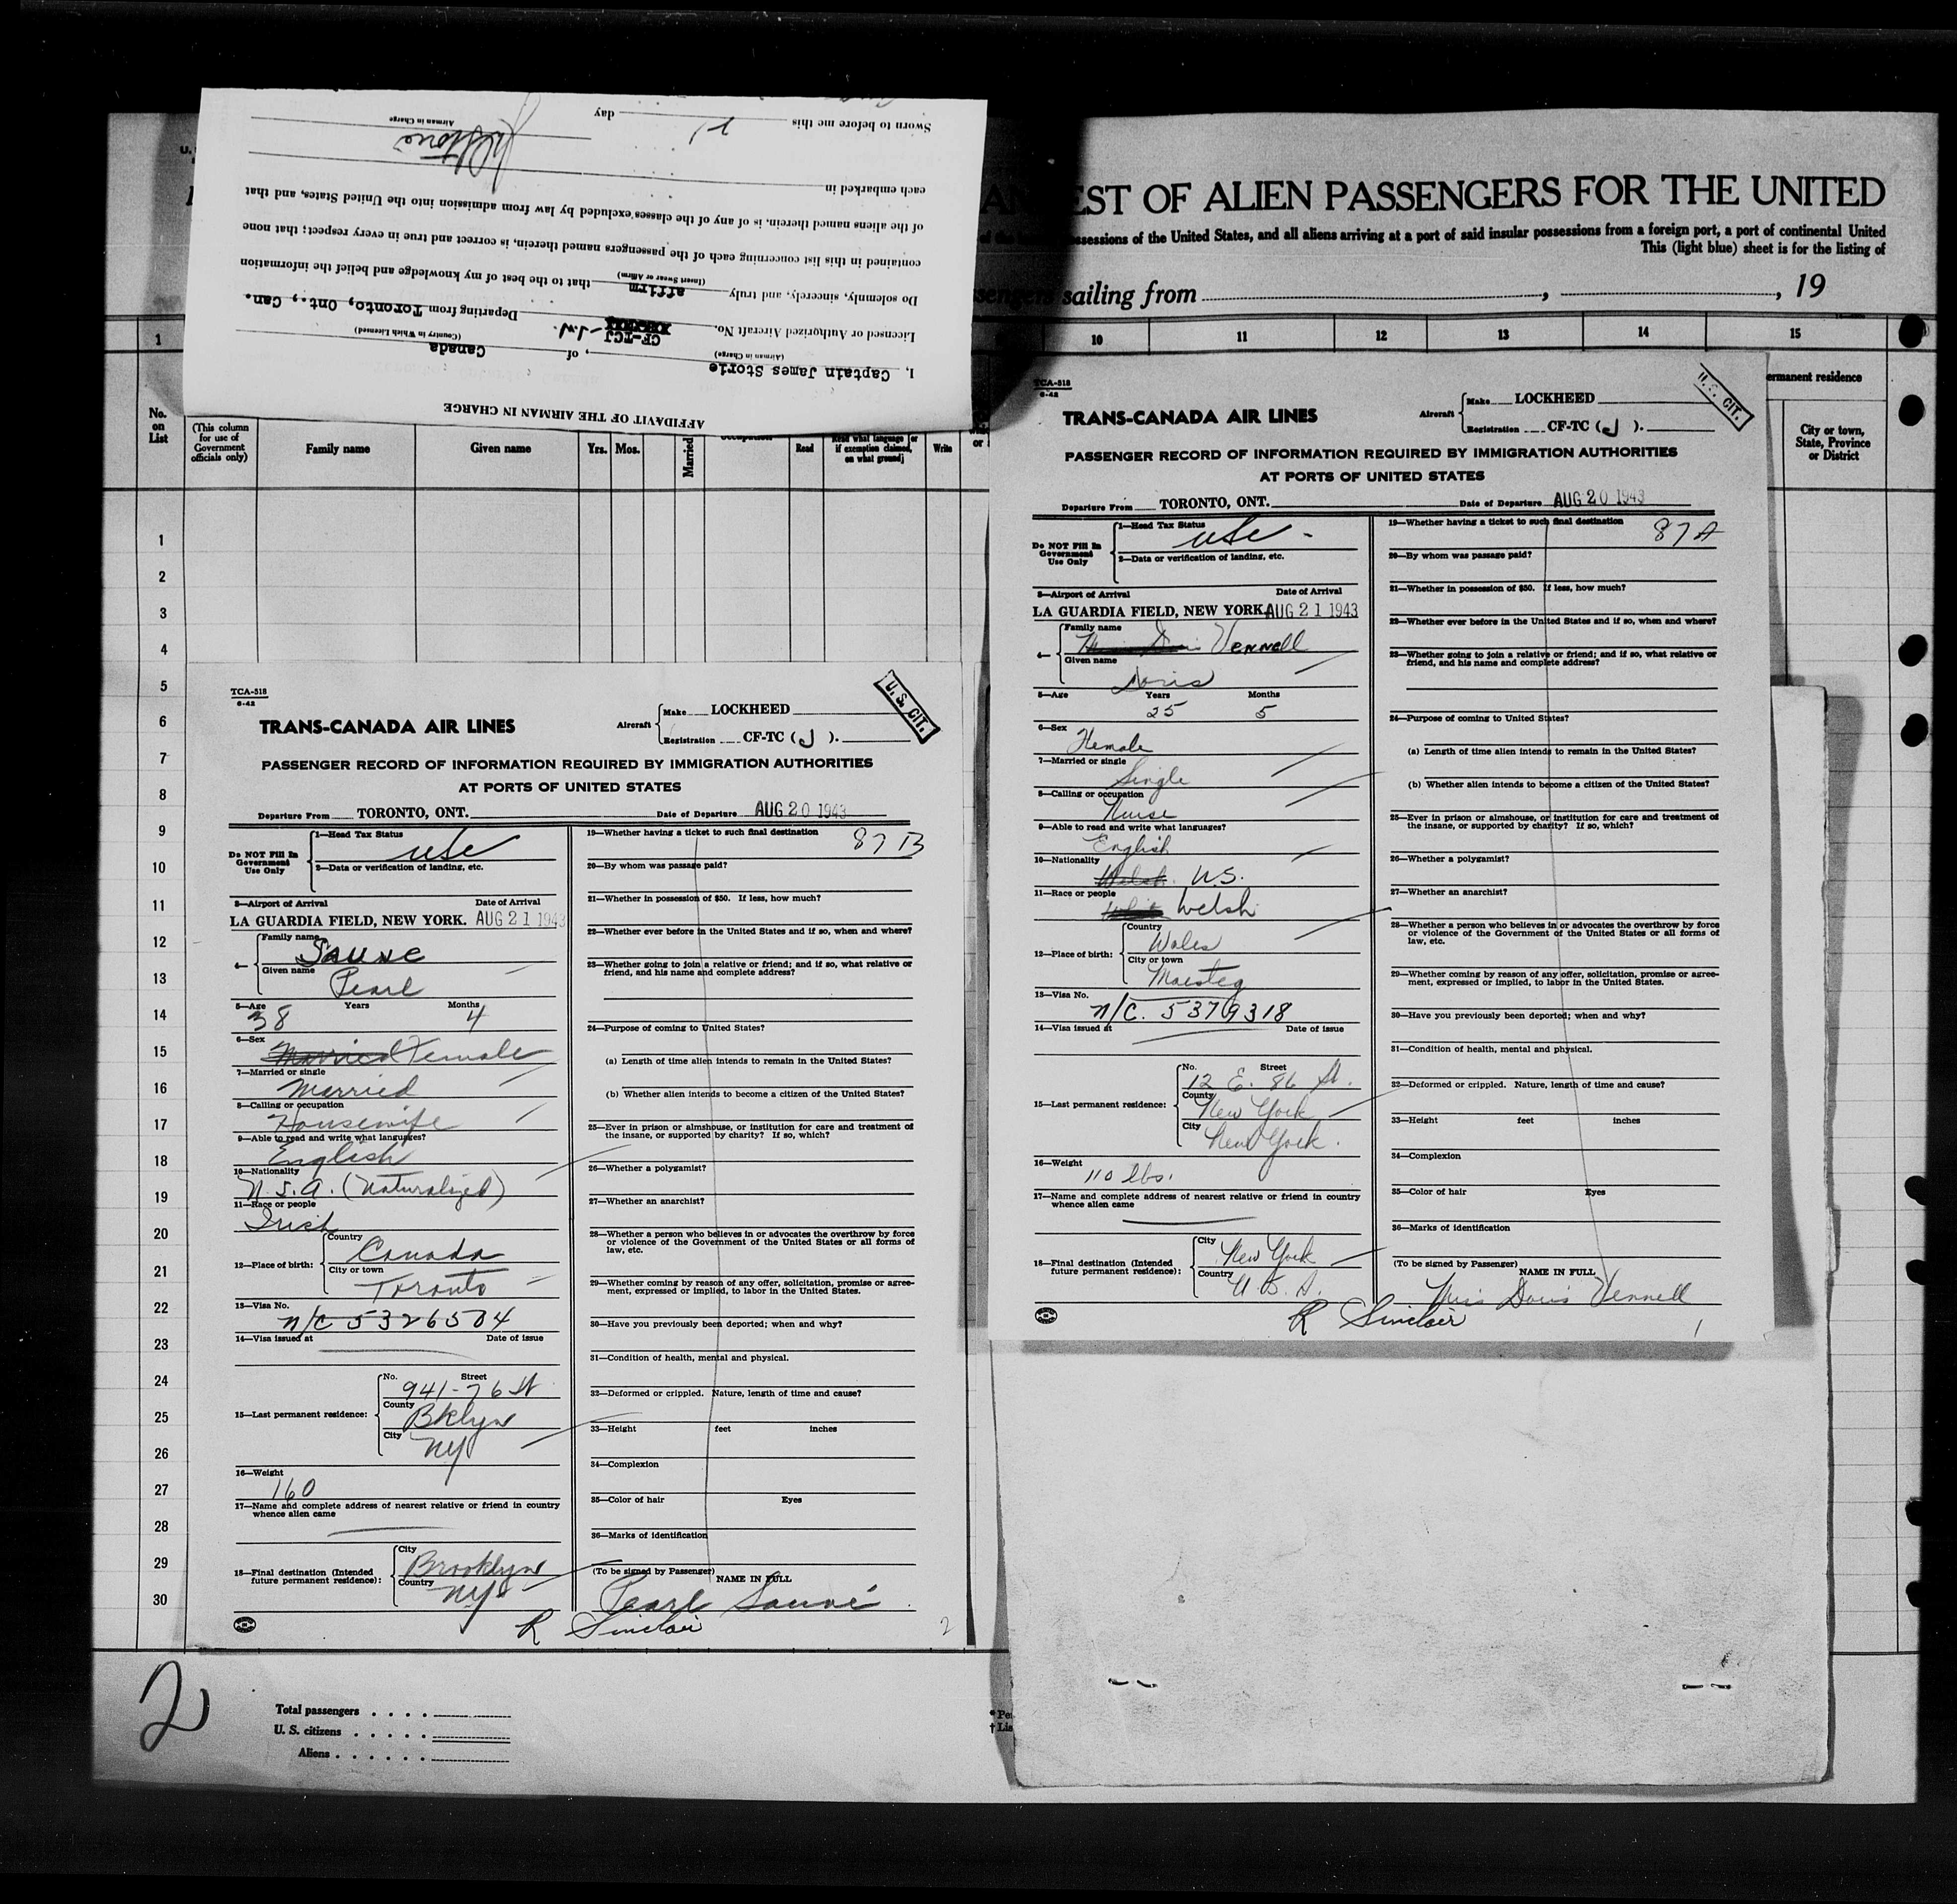 AFFIDAVIT OF THE AIRMAN IN CHARGE
I, Captain James Storie, of Canada
(Airman in Charge) (Country in Which Licensed)
Licensed or Authorized Aircraft No. CF-TCJ Departing from Toronto, Ont., Can.
Do solemnly, sincerely, and truly affirm that to the best of my knowledge and belief the information
(Insert Swear or Affirm)
contained in this list concerning each of the passengers named therein, is correct and true in every respect; that none
of the aliens named therein, is of any of the classes excluded by law from admission into the United States, and that
each embarked in
Airman in Charge
Sworn to before me this 21 day
EST OF ALIEN PASSENGERS FOR THE UNITED
ssessions of the United States, and all aliens arriving at a port of said insular possessions from a foreign port, a port of continental United
This (light blue) sheet is for the listing of
ssengers sailing from , , 19
1 10 11 12 13 14 15
ermanent residence
No. on List
(This column for use of Government officials only)
Family name
Given name
Yrs. Mos.
Married
Read
Read what language [or if exemption claimed, on what ground]
Write
City or town, State, Province or District
1
2
3
4
5
6
7
8
9
10
11
12
13
14
15
16
17
18
19
20
21
22
23
24
25
26
27
28
29
30
TCA-518
6-42
U. S. CIT.
TRANS-CANADA AIR LINES
Aircraft
Make LOCKHEED
Registration CF-TC (J ).
PASSENGER RECORD OF INFORMATION REQUIRED BY IMMIGRATION AUTHORITIES
AT PORTS OF UNITED STATES
Departure From TORONTO, ONT. Date of Departure AUG 20 1943
Do NOT Fill In Government Use Only
1—Head Tax Status
usc
2—Data or verification of landing, etc.
3—Airport of Arrival Date of Arrival
LA GUARDIA FIELD, NEW YORK. AUG 21 1943
4—
Family name
Sauve
Given name
Pearl
5—Age Years Months
38 4
6—Sex
Married Female
7—Married or single
Married
8—Calling or occupation
Housewife
9—Able to read and write what languages?
English
10—Nationality
U.S.A. (Naturalized)
11—Race or people
Irish
12—Place of birth:
Country
Canada
City or town
Toronto
13—Visa No.
N/C 5326504
14—Visa issued at Date of issue
15—Last permanent residence:
No. Street
941-76 St
County
Bklyn
City
NY
16—Weight
160
17—Name and complete address of nearest relative or friend in country
whence alien came
18—Final destination (Intended
future permanent residence):
City
Brooklyn
Country
NY
19—Whether having a ticket to such final destination
87 B
20—By whom was passage paid?
21—Whether in possession of $50. If less, how much?
22—Whether ever before in the United States and if so, when and where?
23—Whether going to join a relative or friend; and if so, what relative or
friend, and his name and complete address?
24—Purpose of coming to United States?
(a) Length of time alien intends to remain in the United States?
(b) Whether alien intends to become a citizen of the United States?
25—Ever in prison or almshouse, or institution for care and treatment of
the insane, or supported by charity? If so, which?
26—Whether a polygamist?
27—Whether an anarchist?
28—Whether a person who believes in or advocates the overthrow by force
or violence of the Government of the United States or all forms of
law, etc.
29—Whether coming by reason of any offer, solicitation, promise or agree-
ment, expressed or implied, to labor in the United States.
30—Have you previously been deported; when and why?
31—Condition of health, mental and physical.
32—Deformed or crippled. Nature, length of time and cause?
33—Height feet inches
34—Complexion
35—Color of hair Eyes
36—Marks of identification
(To be signed by Passenger) NAME IN FULL
Pearl Sauvé
R Sinclair
2
TCA-518
6-42
U. S. CIT.
TRANS-CANADA AIR LINES
Aircraft
Make LOCKHEED
Registration CF-TC (J ).
PASSENGER RECORD OF INFORMATION REQUIRED BY IMMIGRATION AUTHORITIES
AT PORTS OF UNITED STATES
Departure From TORONTO, ONT. Date of Departure AUG 20 1943
Do NOT Fill In Government Use Only
1—Head Tax Status
usc -
2—Data or verification of landing, etc.
3—Airport of Arrival Date of Arrival
LA GUARDIA FIELD, NEW YORK. AUG 21 1943
4—
Family name
Vennell
Given name
Doris
5—Age Years Months
25 5
6—Sex
Female
7—Married or single
Single
8—Calling or occupation
Nurse
9—Able to read and write what languages?
English
10—Nationality
Welsh U.S.
11—Race or people
Welsh
12—Place of birth:
Country
Wales
City or town
Maesteg
13—Visa No.
N/C. 5379318
14—Visa issued at Date of issue
15—Last permanent residence:
No. Street
12 E. 86 St.
County
New York
City
New York.
16—Weight
110 lbs.
17—Name and complete address of nearest relative or friend in country
whence alien came
18—Final destination (Intended
future permanent residence):
City
New York
Country
U.S.A.
19—Whether having a ticket to such final destination
87 A
20—By whom was passage paid?
21—Whether in possession of $50. If less, how much?
22—Whether ever before in the United States and if so, when and where?
23—Whether going to join a relative or friend; and if so, what relative or
friend, and his name and complete address?
24—Purpose of coming to United States?
(a) Length of time alien intends to remain in the United States?
(b) Whether alien intends to become a citizen of the United States?
25—Ever in prison or almshouse, or institution for care and treatment of
the insane, or supported by charity? If so, which?
26—Whether a polygamist?
27—Whether an anarchist?
28—Whether a person who believes in or advocates the overthrow by force
or violence of the Government of the United States or all forms of
law, etc.
29—Whether coming by reason of any offer, solicitation, promise or agree-
ment, expressed or implied, to labor in the United States.
30—Have you previously been deported; when and why?
31—Condition of health, mental and physical.
32—Deformed or crippled. Nature, length of time and cause?
33—Height feet inches
34—Complexion
35—Color of hair Eyes
36—Marks of identification
(To be signed by Passenger) NAME IN FULL
Miss Doris Vennell
R Sinclair
1
2
Total passengers
U. S. citizens
Aliens